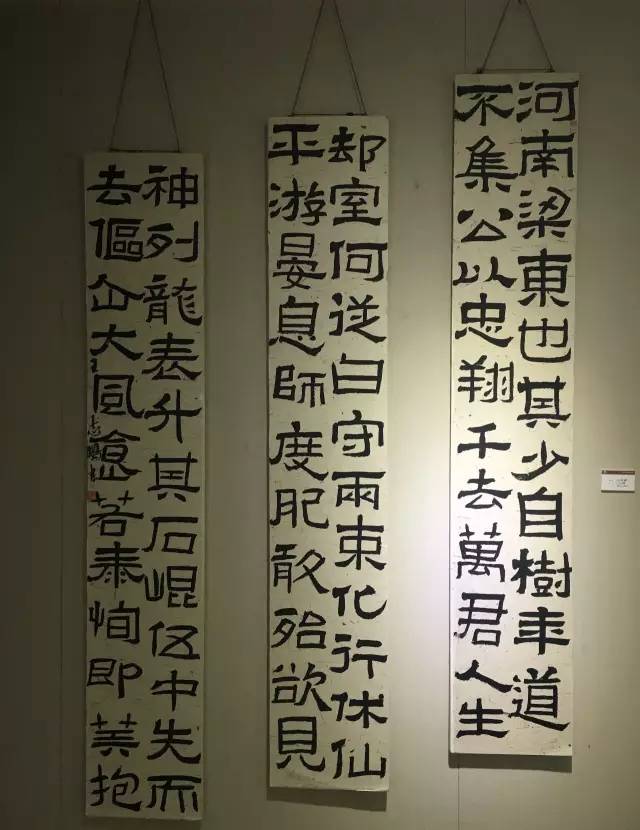 河南梁東也其少自樹年道
不集公以忠翔千去萬君人生
却室何従白守兩束化行休仙
平游晏息師度肥散殆欲見
神列龍表升其石崐伍中失而
去傴仚大風若泰恂即抱